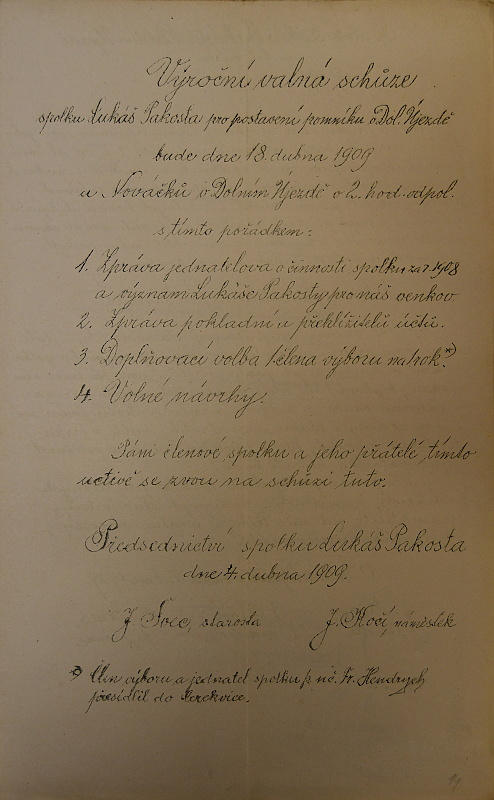 Výroční valná schůze
spolku Lukáš Pakosta pro postavení pomníku v Dol. Újezdě
bude dne 18. dubna 1909
u Nováčků v Dolním Újezdě o 2. hod. odpol.
s tímto pořádkem:
1. Zpráva jednatelova o činnosti spolku za r. 1908
a význam Lukáše Pakosty pro náš venkov
2. Zpráva pokladní a přehlížitelů účtů.
3. Doplňovací volba 1 člena výboru na 1 rok.*)
4. Volné návrhy.
Páni členové spolku a jeho přátelé tímto
uctivě se zvou na schůzi tuto.
Předsednictví spolku Lukáš Pakosta
dne 4. dubna 1909.
J. Švec, starosta J. Kočí, náměstek
*) Člen výboru a jednatel spolku p. Fr. Hendrych
přesídlil do Cerekvice.
11